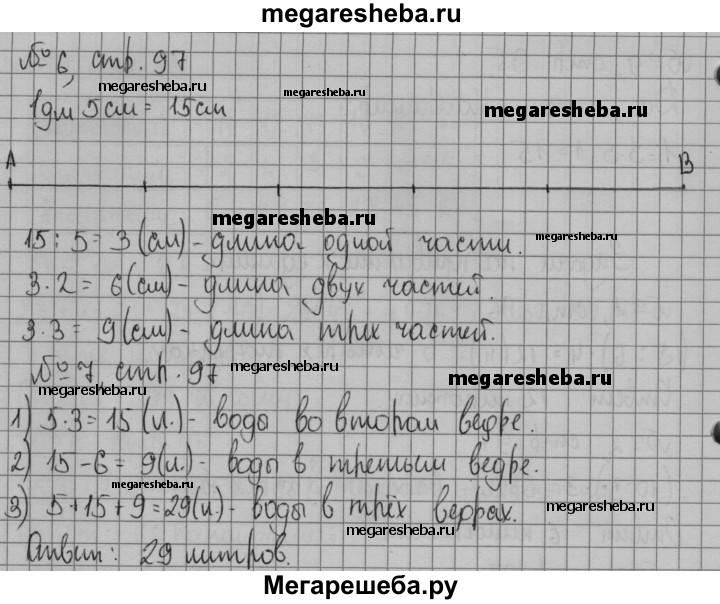 megaresheba.ru
№ 6, стр. 97
megaresheba.ru
megaresheba.ru
megaresheba.ru
1 дм 5 см = 15 см
A B
megaresheba.ru
megaresheba.ru
15 : 5 = 3 (см) - длина одной части.
3 · 2 = 6 (см) - длина двух частей.
3 · 3 = 9 (см) - длина трёх частей.
№ 7, стр. 97
megaresheba.ru
megaresheba.ru
megaresheba.ru
1) 5 · 3 = 15 (л.) - воды во втором ведре.
2) 15 - 6 = 9 (л.) - воды в третьим ведре.
megaresheba.ru
3) 5 + 15 + 9 = 29 (л.) - воды в трёх вёдрах.
megaresheba.ru
megaresheba.ru
Ответ: 29 литров.
Мегарешеба.ру